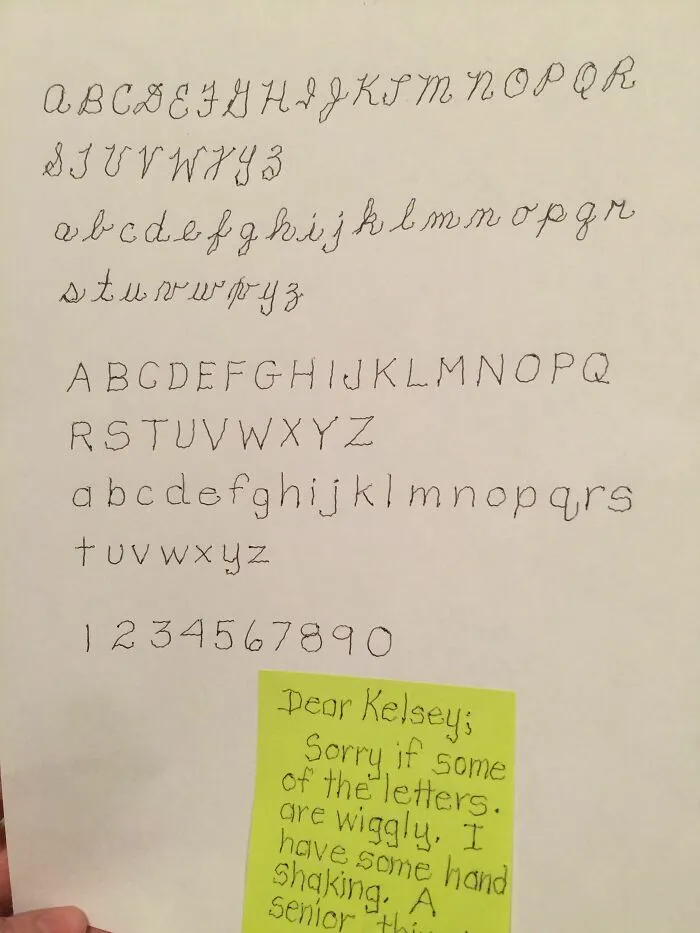 A B C D E F G H I J K L M N O P Q R
S T U V W X Y Z
a b c d e f g h i j k l m n o p q r
s t u v w x y z
A B C D E F G H I J K L M N O P Q
R S T U V W X Y Z
a b c d e f g h i j k l m n o p q r s
t u v w x y z
1 2 3 4 5 6 7 8 9 0
Dear Kelsey;
Sorry if some
of the letters.
are wiggly. I
have some hand
shaking. A
senior